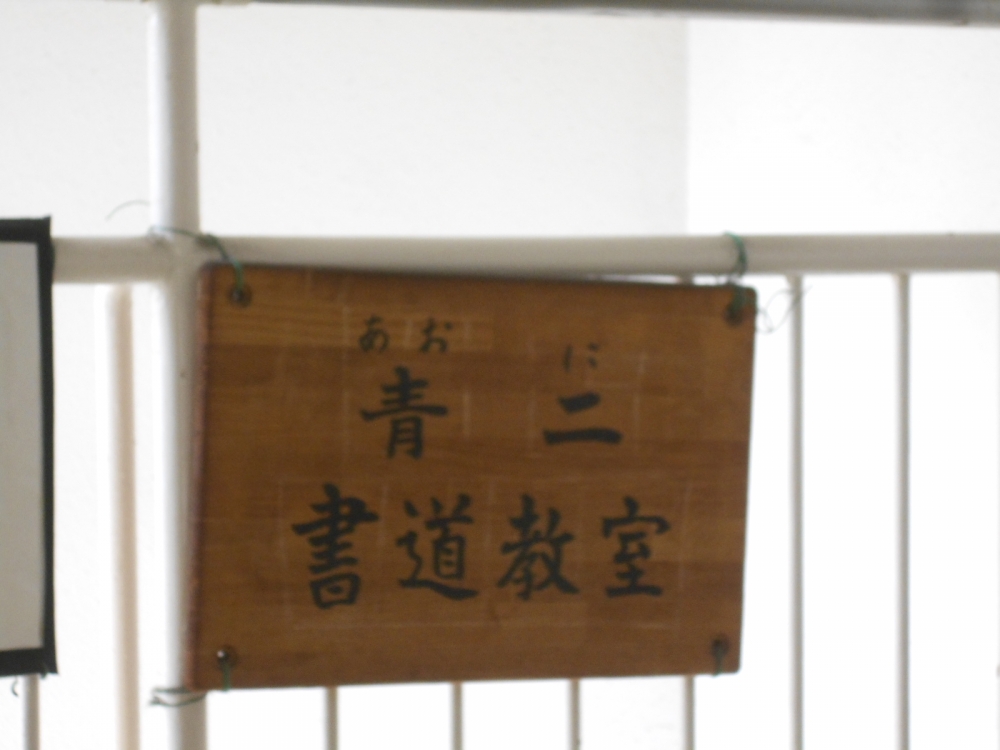 あお に
青二
書道教室